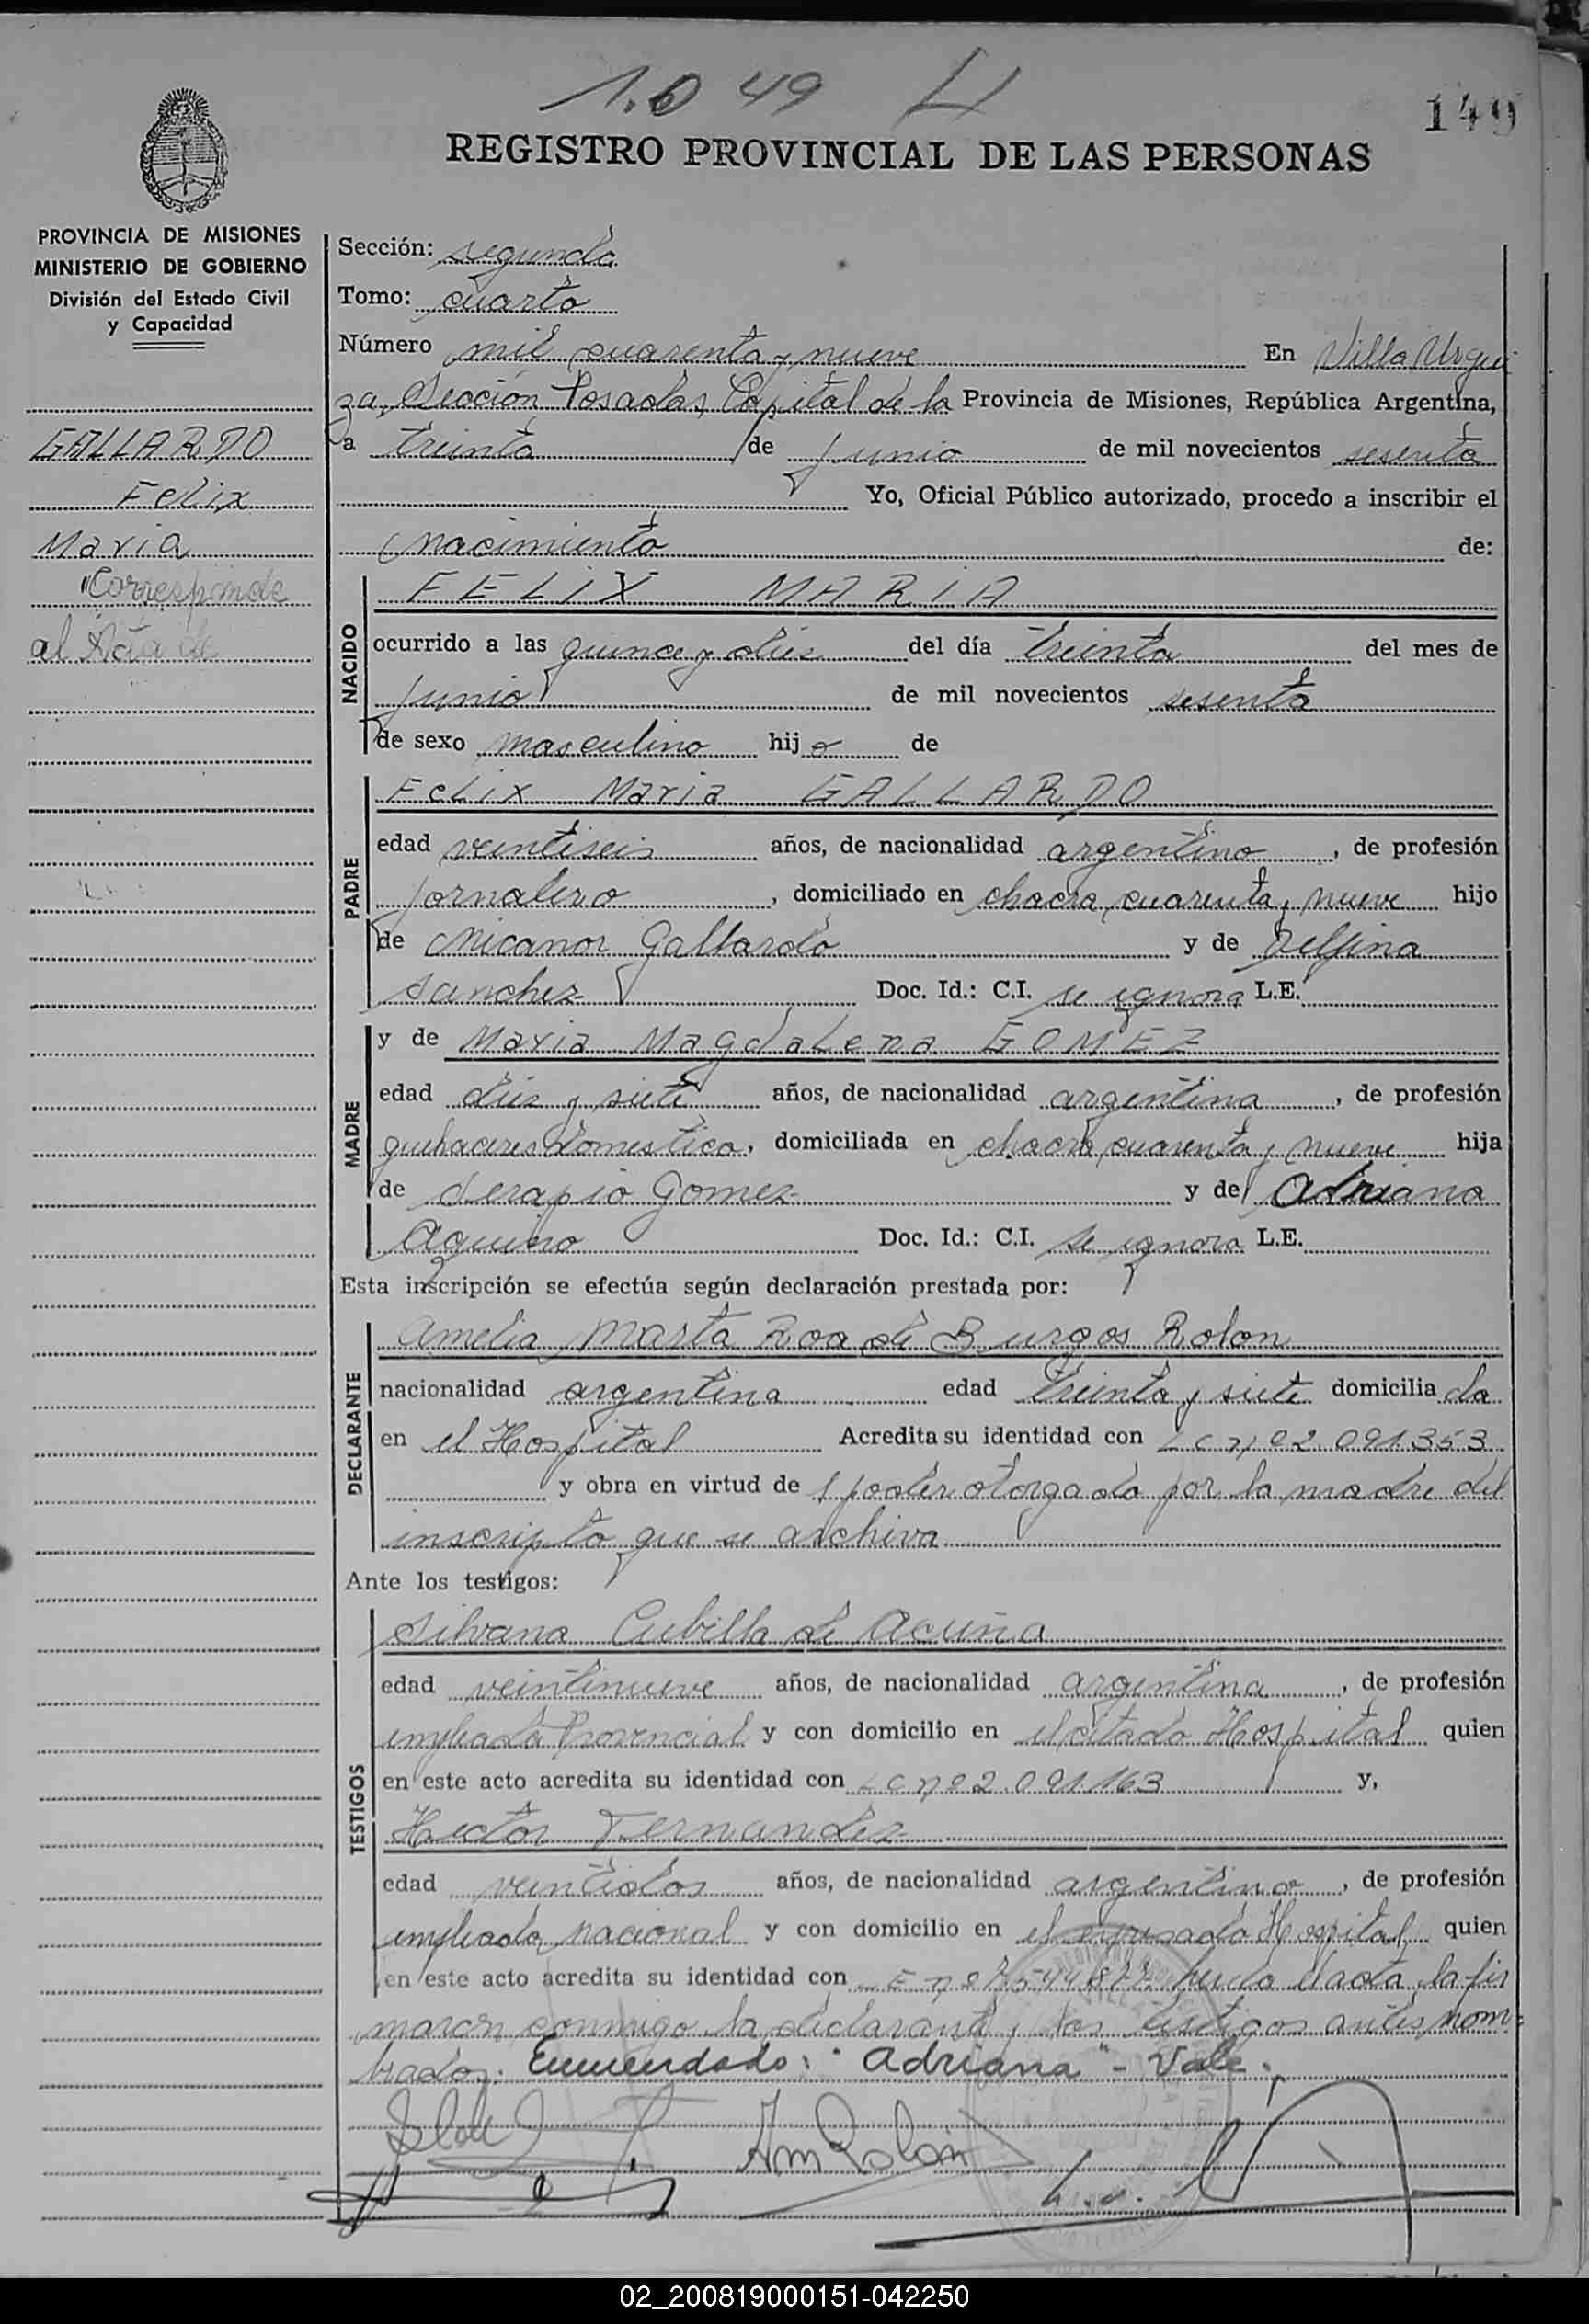 1.049
149
REGISTRO PROVINCIAL DE LAS PERSONAS
PROVINCIA DE MISIONES
MINISTERIO DE GOBIERNO
División del Estado Civil
y Capacidad
GALLARDO
Felix
Maria
Corresponde
al Acta de
Sección: segunda
Tomo: cuarto
Número mil cuarenta y nueve En Villa Urqui
za, Sección Posadas, Capital de la Provincia de Misiones, República Argentina,
a treinta de junio de mil novecientos sesenta
Yo, Oficial Público autorizado, procedo a inscribir el
nacimiento de:
NACIDO
FELIX MARIA
ocurrido a las quince y diez del día treinta del mes de
junio de mil novecientos sesenta
de sexo masculino hijo de
PADRE
Felix Maria GALLARDO
edad veintiseis años, de nacionalidad argentino, de profesión
jornalero, domiciliado en chacra cuarenta y nueve hijo
de Nicanor Gallardo y de Delfina
Sanchez Doc. Id.: C.I. se ignora L.E.
MADRE
y de Maria Magdalena GOMEZ
edad diez y siete años, de nacionalidad argentina, de profesión
quehaceres domestico, domiciliada en chacra cuarenta y nueve hija
de Serapio Gomez y de Adriana
Aquino Doc. Id.: C.I. se ignora L.E.
Esta inscripción se efectúa según declaración prestada por:
DECLARANTE
Amelia Marta Roa de Burgos Rolon
nacionalidad argentina edad treinta y siete domiciliada
en el Hospital Acredita su identidad con L c nº 2.091.353
y obra en virtud de poder otorgado por la madre del
inscripto que se archiva
Ante los testigos:
TESTIGOS
Silvana Cubilla de Acuña
edad veintinueve años, de nacionalidad argentina, de profesión
empleada Provincial y con domicilio en el citado Hospital quien
en este acto acredita su identidad con L c nº 2.091.163 y,
Hector Fernandez
edad veintidos años, de nacionalidad argentino, de profesión
empleado nacional y con domicilio en el expresado Hospital quien
en este acto acredita su identidad con L E nº leida el acta, la fir
maron conmigo la declarante y los testigos antes nom
brados. Enmendado: "Adriana" - Vale.
AmRolon
02_200819000151-042250